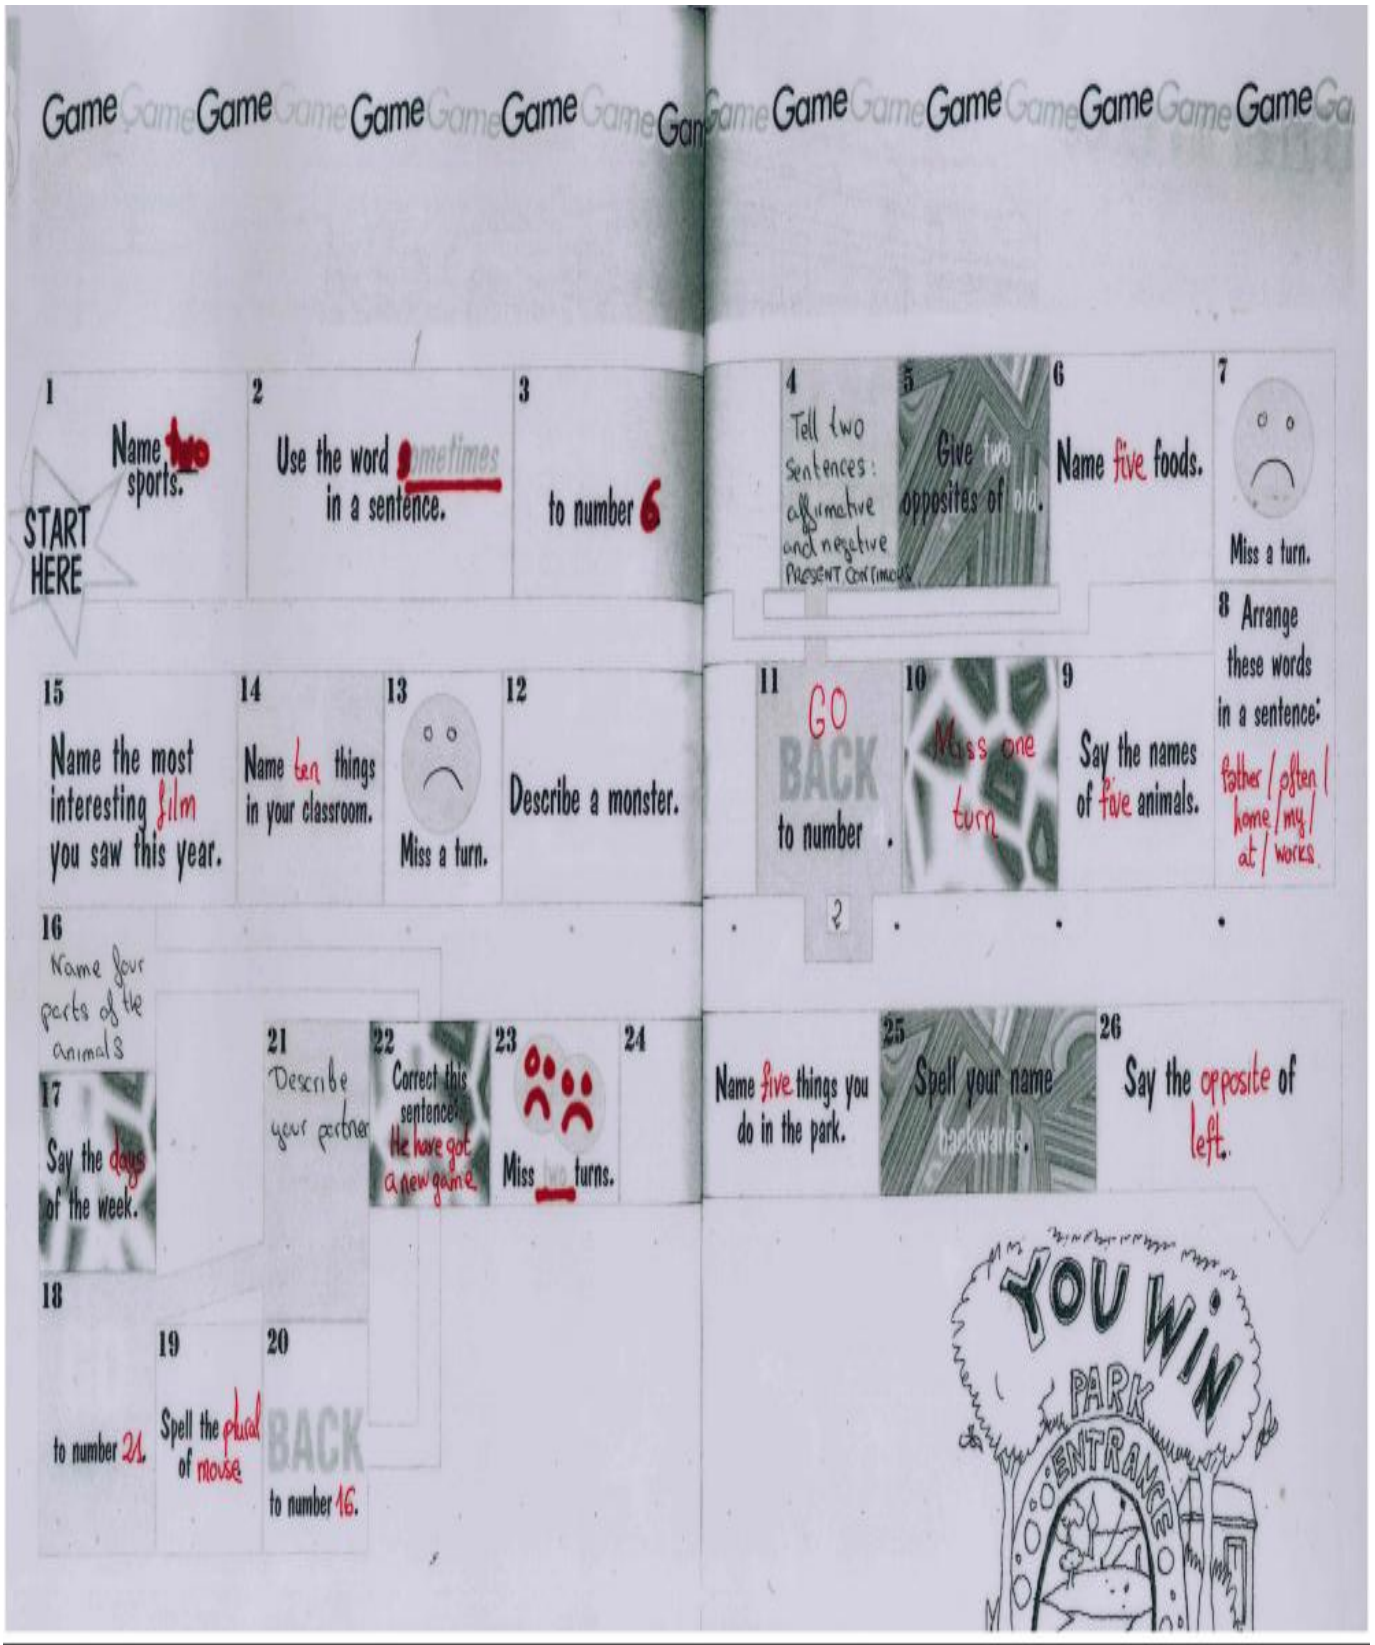 Game Game Game Game Game Game Game Game Gam Game Game Game Game Game Game Game Game Ga
1
Name two
sports.
START
HERE
2
Use the word sometimes
in a sentence.
3
to number 6
4
Tell two
sentences:
affirmative
and negative
PRESENT CONTINUOUS
5
Give two
opposites of old.
6
Name five foods.
7
Miss a turn.
8 Arrange
these words
in a sentence:
father / often /
home / my /
at / works.
9
Say the names
of five animals.
10
Miss one
turn
11
GO
BACK
to number .
2
12
Describe a monster.
13
Miss a turn.
14
Name ten things
in your classroom.
15
Name the most
interesting film
you saw this year.
16
Name four
parts of the
animals
17
Say the days
of the week.
18
to number 21.
19
Spell the plural
of mouse.
20
BACK
to number 16.
21
Describe
your partner
22
Correct this
sentence:
He have got
a new game
23
Miss two turns.
24
Name five things you
do in the park.
25
Spell your name
backwards.
26
Say the opposite of
left.
YOU WIN
PARK
ENTRANCE